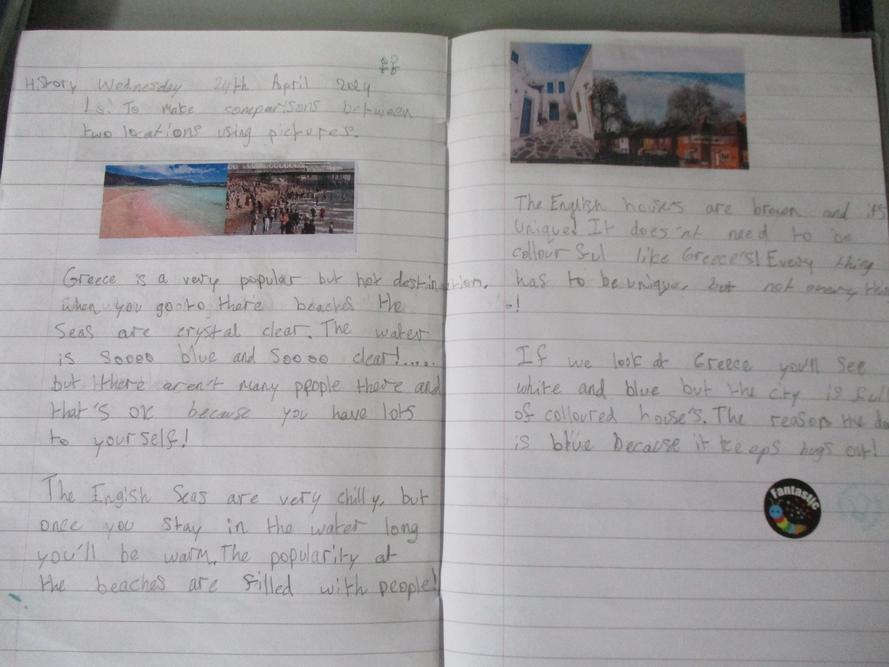 History Wednesday 24th April 2024
l.s: To make comparisons between
two locations using pictures.
Greece is a very popular but hot destination.
when you go to there beaches the
Seas are crystal clear. The water
is Soooo blue and Soooo clear!.....
but there aren't many people there and
that's ok because you have lots
to yourself!
The Engish Seas are very chilly, but
once you stay in the water long
you'll be warm. The popularity at
the beaches are filled with people!
The English houses are brown and its
Unique! It does'nt need to be
collourful like Greece's! Every thing
has to be unique, but not every
-!
If we look at Greece you'll see
white and blue but the city is
of coloured house's. The reason the
is blue because it keeps bugs out!
Fantastic